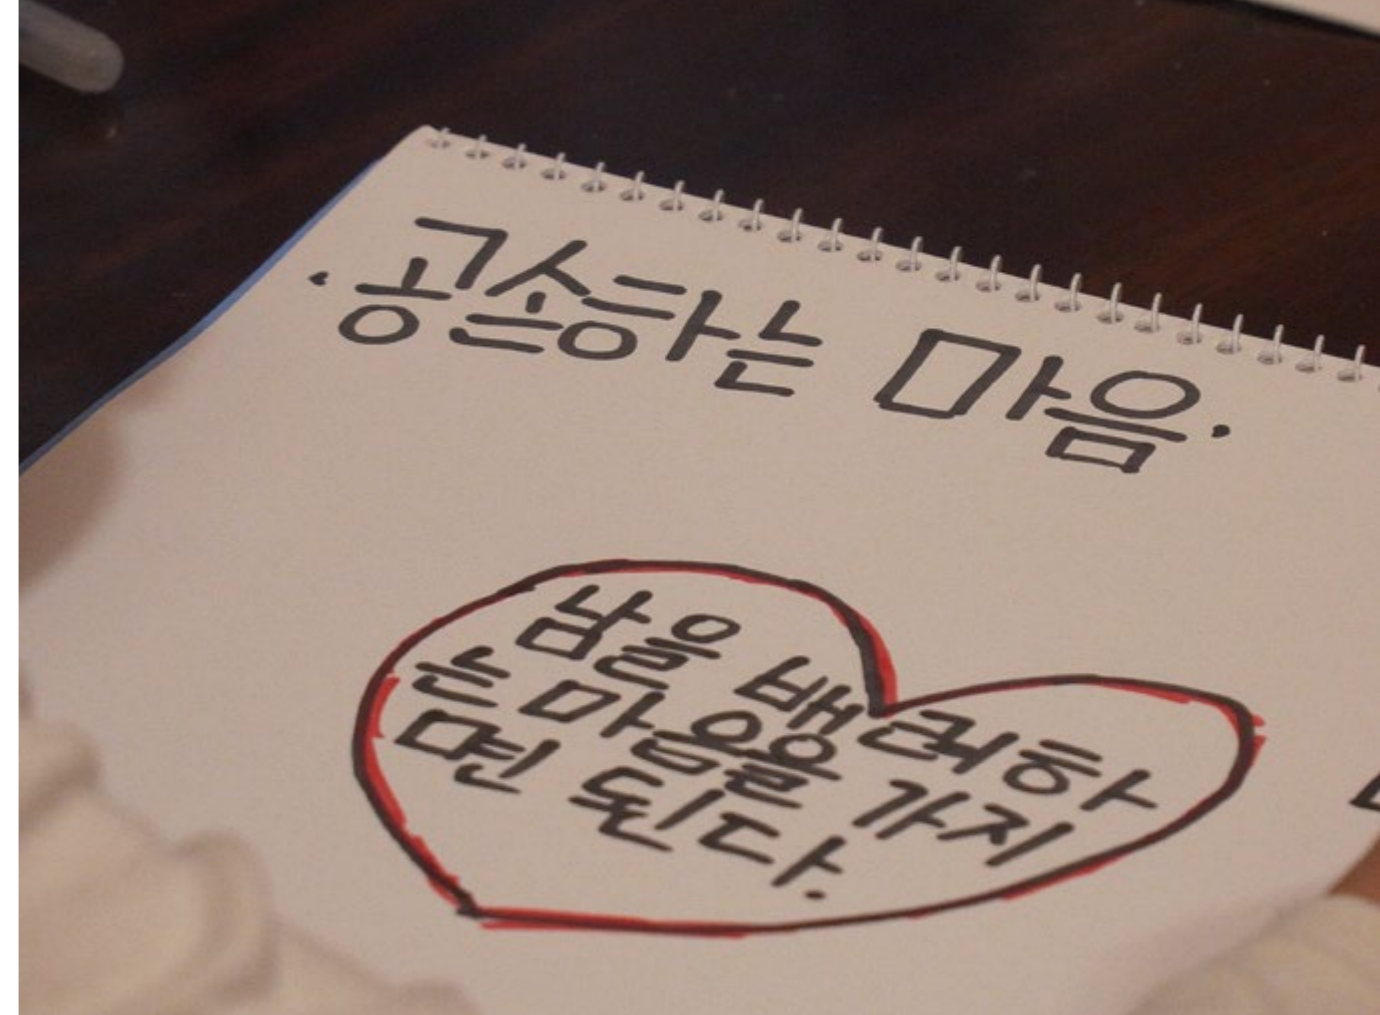 ·공손하는 마음·
남을 배려하
는 마음을 가지
면 된다.